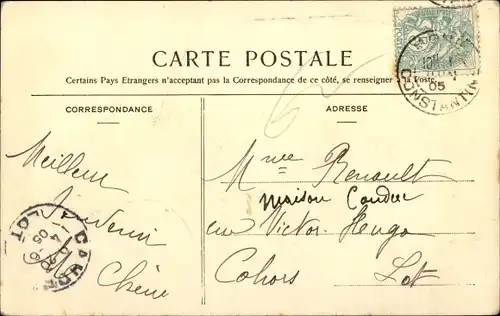 CARTE POSTALE
Certains Pays Etrangers n'acceptant pas la Correspondance de ce côté, se renseigner à la Poste.
CORRESPONDANCE
ADRESSE
Meilleur
Souvenir
Mme Renault
maison
rue Victor-Hugo
Cahors Lot
05
CAHORS
LOT
05